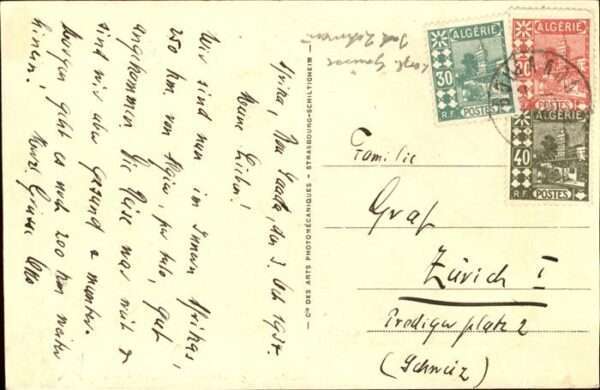 Afrika, Bou Saada, den 3. Okt 1934.
Meine Lieben!
Wir sind nun im Innern Afrikas,
250 km. von Algier, per Auto, gut
angekommen. Die Reise war
sind wir aber gesund & munter.
Morgen geht es noch 200 km weiter
hinein. Herzl. Grüsse Otto
— Cie DES ARTS PHOTOMÉCANIQUES - STRASBOURG-SCHILTIGHEIM —
Herzl Grüsse
ALGÉRIE
30
POSTES
R.F
ALGÉRIE
20
POSTES
ALGÉRIE
40
R.F
POSTES
Familie
Graf
Zürich I
Predigerplatz 2
(Schweiz)